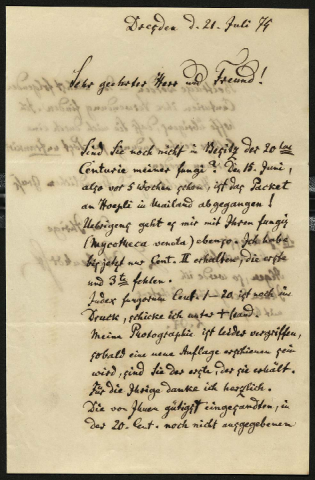 Dresden d. 21. Juli 75
Sehr geehrter Herr und Freund!
Sind Sie noch nicht in Besitz der 20 ten
Centurie meiner fungi? Den 15. Juni,
also vor 5 Wochen schon, ist das Packet
an Hoepli in Mailand abgegangen!
Uebrigens geht es mir mit Ihren fungis
(Mycotheca veneta) ebenso. Ich habe
bis jetzt nur Cent. II erhalten, die erste
und 3te fehlen.
Index fungorum Cent. 1–20 ist noch im
Druck, schicke ich unter +band.
Meine Photographie ist leider vergriffen,
sobald eine neue Auflage erschienen sein
wird, sind Sie der erste, der sie erhält.
Für die Ihrige danke ich herzlich.
Die von Ihnen gütigst eingesandten, in
der 20. Cent. noch nicht ausgegebenen